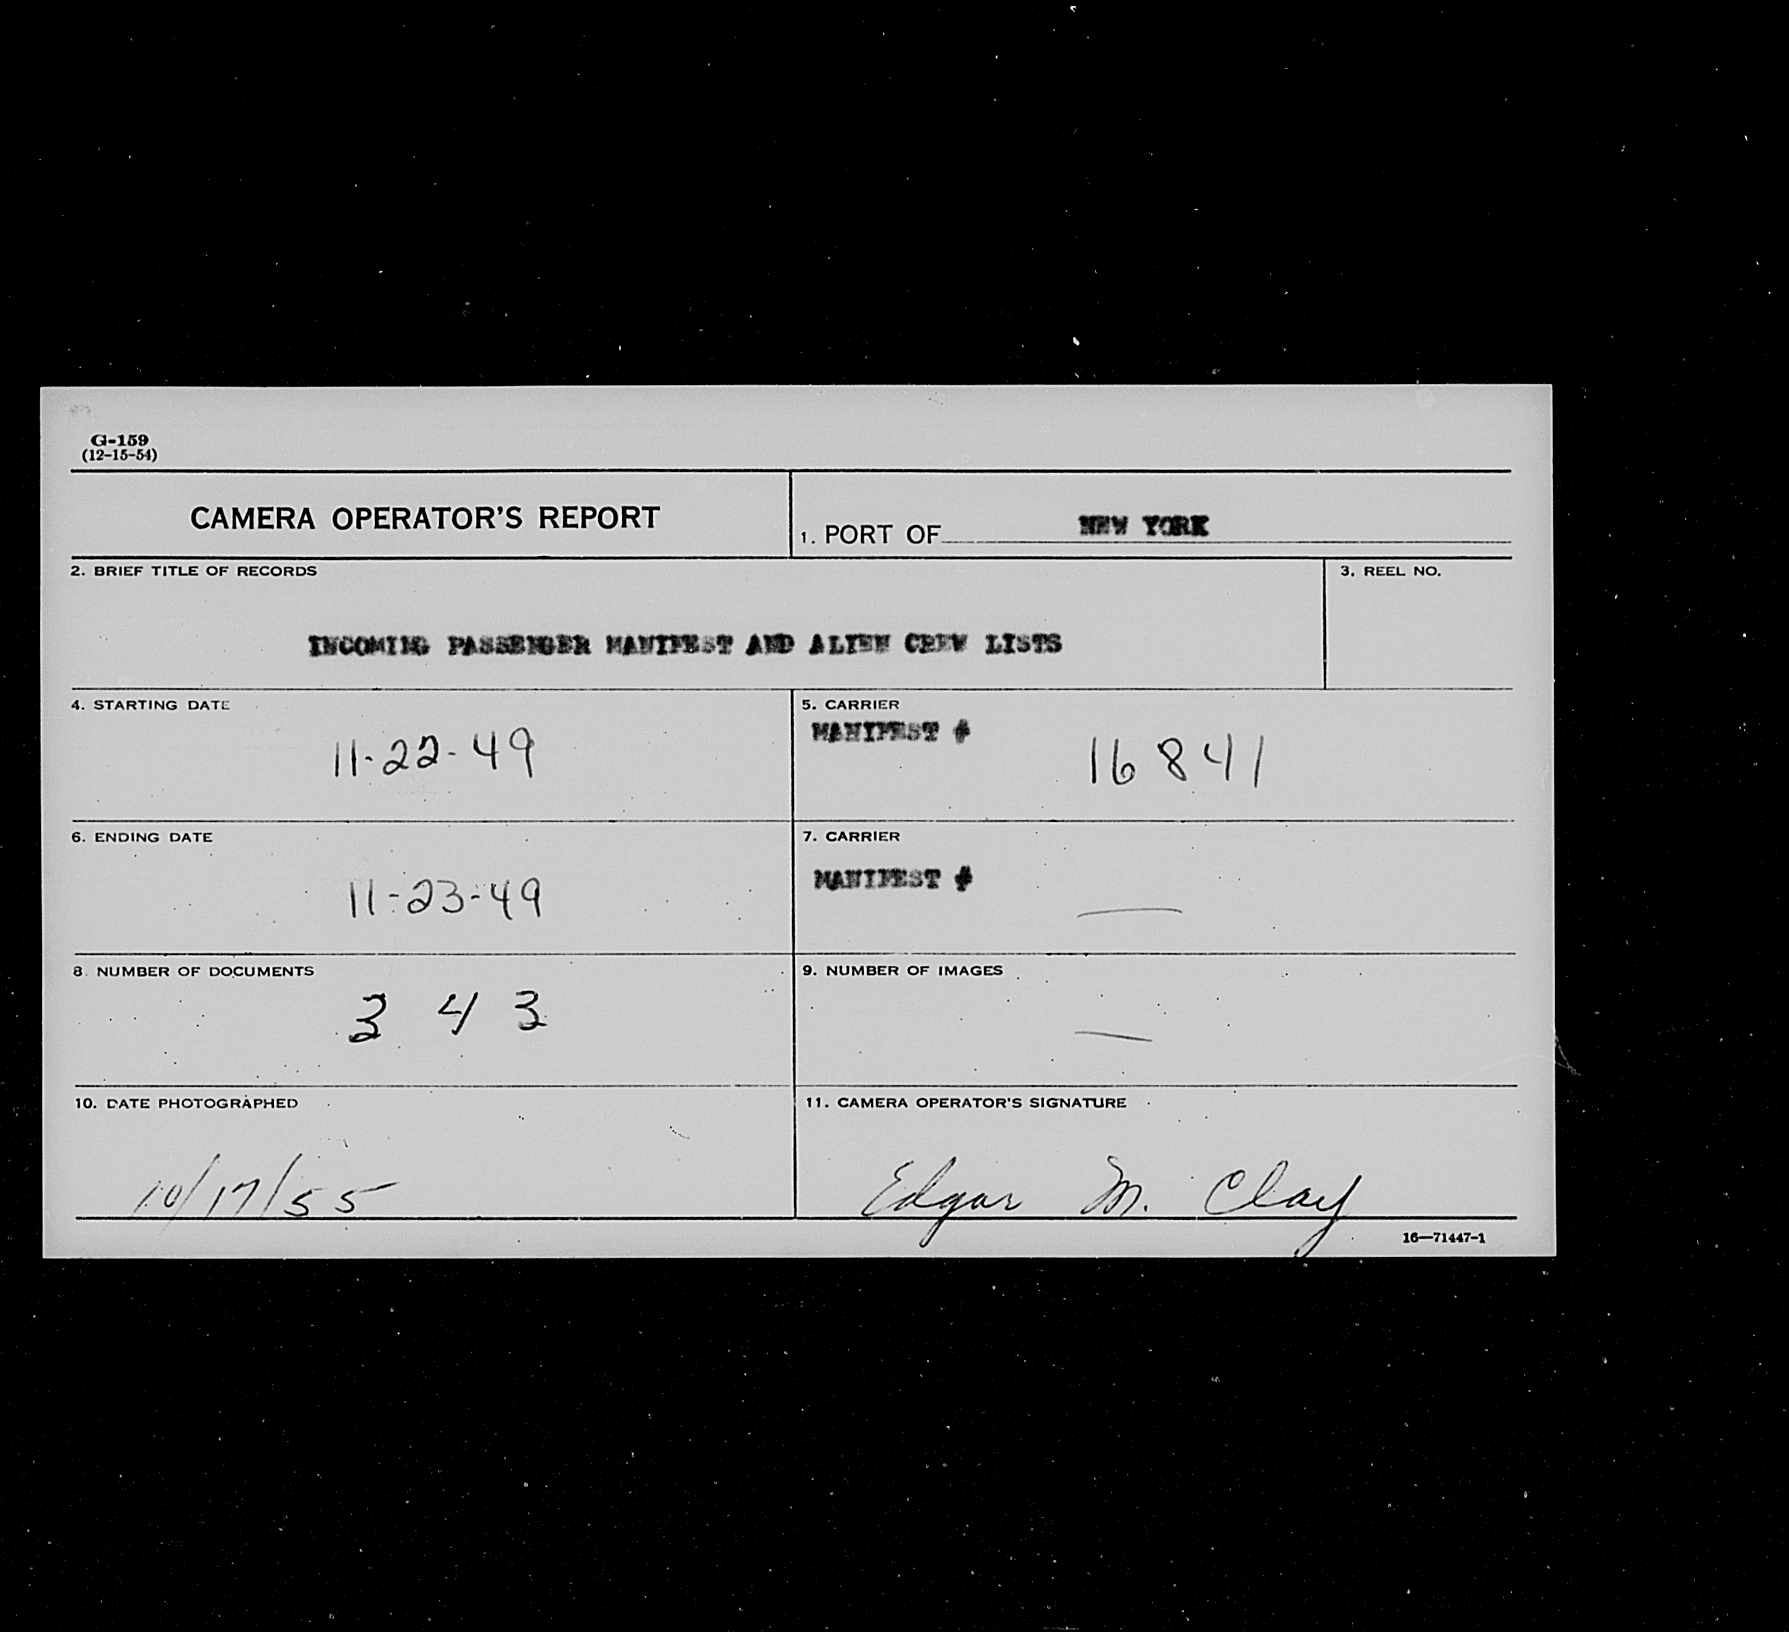 G-159
(12-15-54)
CAMERA OPERATOR'S REPORT
1. PORT OF NEW YORK
2. BRIEF TITLE OF RECORDS
3. REEL NO.
INCOMING PASSENGER MANIFEST AND ALIEN CREW LISTS
4. STARTING DATE
11-22-49
5. CARRIER
MANIFEST #
16841
6. ENDING DATE
11-23-49
7. CARRIER
MANIFEST #
—
8. NUMBER OF DOCUMENTS
343
9. NUMBER OF IMAGES
—
10. DATE PHOTOGRAPHED
10/17/55
11. CAMERA OPERATOR'S SIGNATURE
Edgar M. Clay
16—71447-1